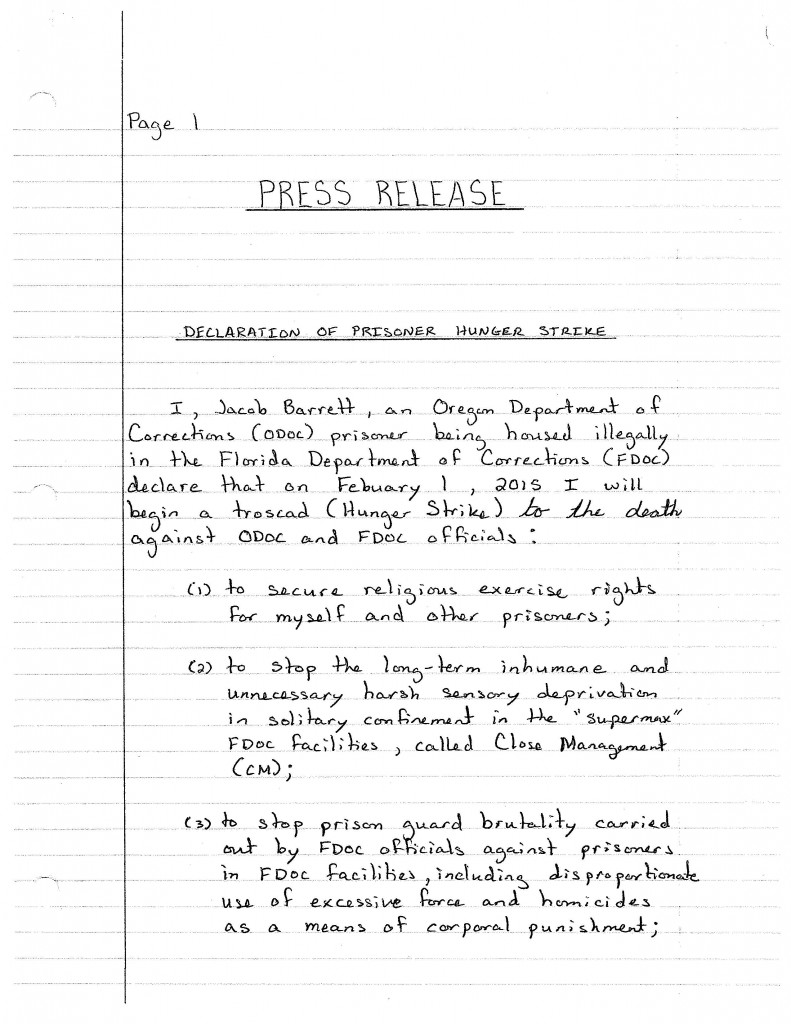 Page 1
PRESS RELEASE
DECLARATION OF PRISONER HUNGER STRIKE
I, Jacob Barrett, an Oregon Department of
Corrections (ODOC) prisoner being housed illegally
in the Florida Department of Corrections (FDOC)
declare that on Febuary 1, 2015 I will
begin a troscad (Hunger Strike) to the death
against ODOC and FDOC officials:
(1) to secure religious exercise rights
for myself and other prisoners;
(2) to stop the long-term inhumane and
unnecessary harsh sensory deprivation
in solitary confinement in the "supermax"
FDOC facilities, called Close Management
(CM);
(3) to stop prison guard brutality carried
out by FDOC officials against prisoners
in FDOC facilities, including disproportionate
use of excessive force and homicides
as a means of corporal punishment;